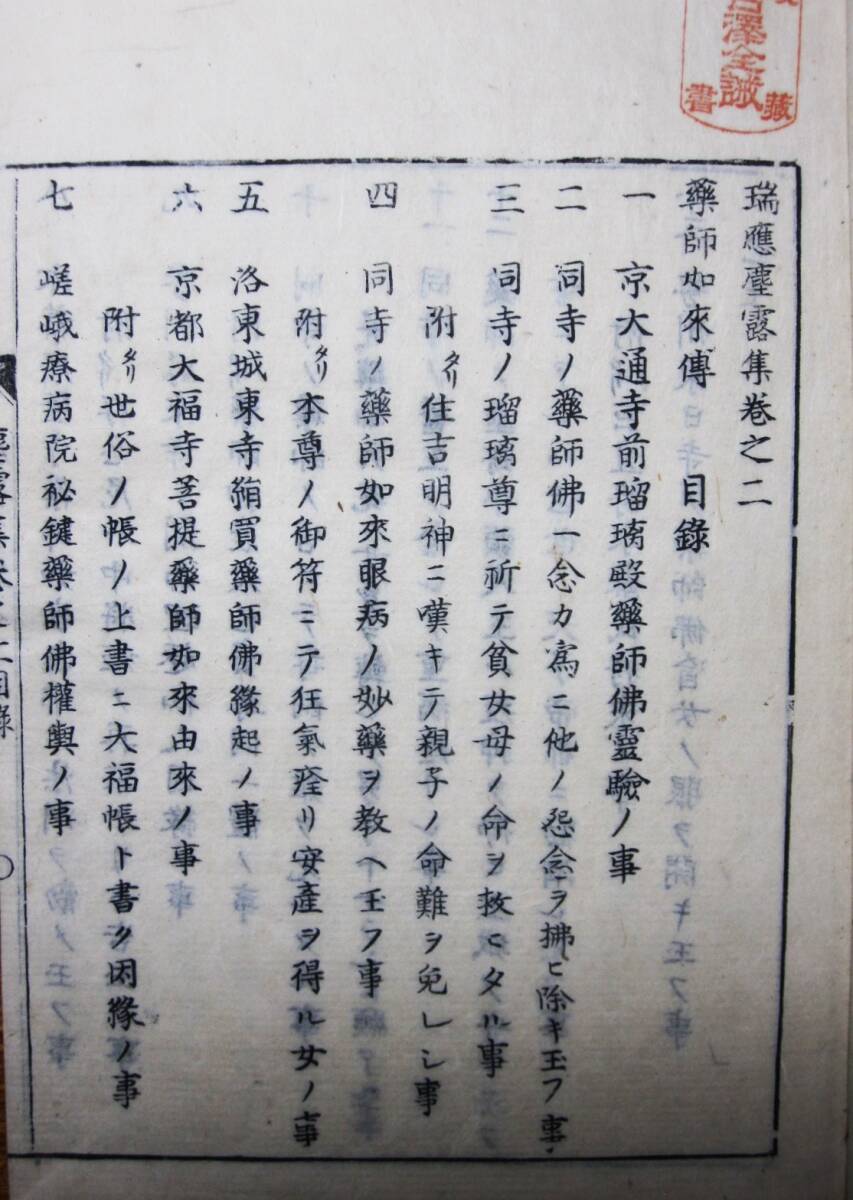 澤全誠
藏書
瑞應塵露集巻之二
藥師如來傳 目録
一 京大通寺前瑠璃殿藥師佛靈驗ノ事
二 同寺ノ藥師佛一念カ為ニ他ノ怨念ヲ拂ヒ除キ玉フ事
三 同寺ノ瑠璃尊ニ祈テ貧女母ノ命ヲ救ヒタル事
附タリ住吉明神ニ嘆キテ親子ノ命難ヲ免レシ事
四 同寺ノ藥師如來眼病ノ妙藥ヲ教ヘ玉フ事
附タリ本尊ノ御符ニテ狂氣痊リ安産ヲ得ル女ノ事
五 洛東城東寺絹買藥師佛縁起ノ事
六 京都大福寺菩提藥師如來由來ノ事
附タリ世俗ノ帳ノ上書ニ大福帳ト書ク因縁ノ事
七 嵯峨療病院祕鍵藥師佛權輿ノ事
塵露集巻之二目録